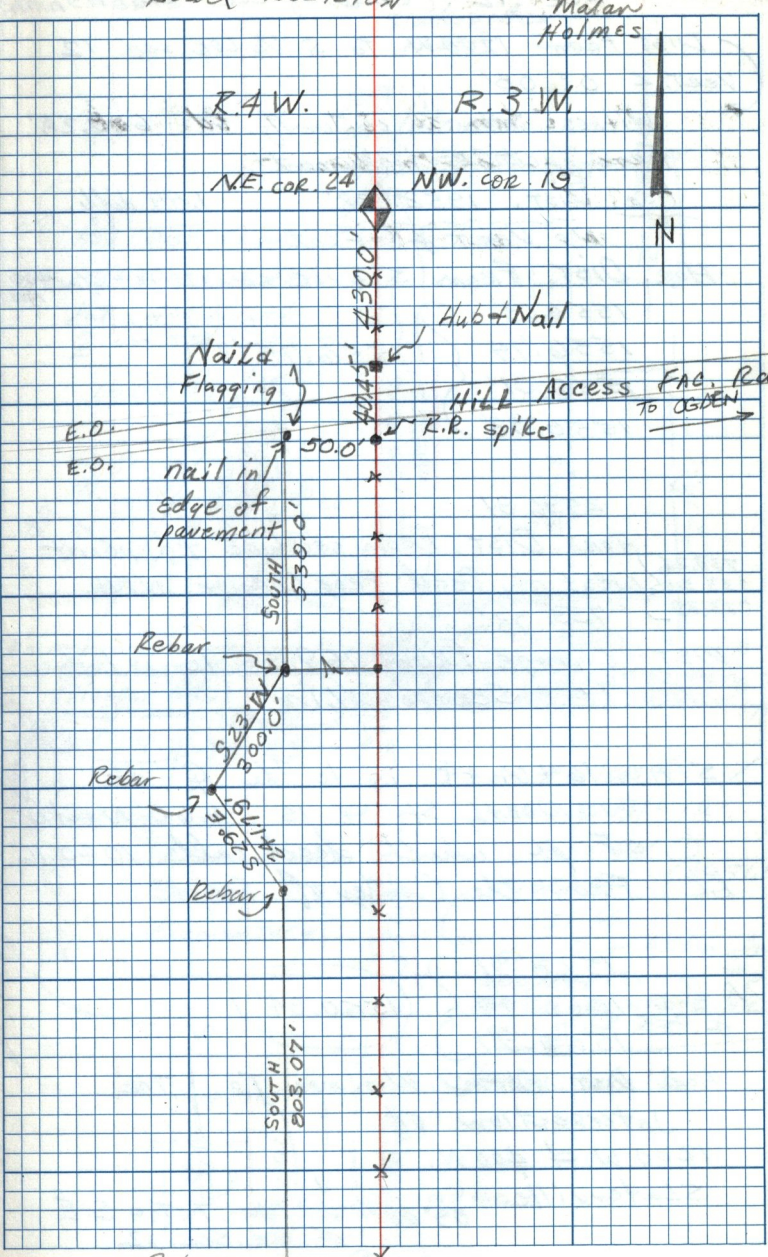 Malan
Holmes
R.4 W. R.3 W.
N.E. COR. 24 NW. COR. 19
N
430.0'
Hub & Nail
Nail &
Flagging
40.45'
Hill Access FAC. Ro
TO OGDEN
E.O.
E.O.
50.0'
R.R. spike
nail in
Edge of
pavement
SOUTH
530.0'
Rebar
S 23° W
300.0'
Rebar
S 29° E
241.79'
Rebar
SOUTH
803.07'